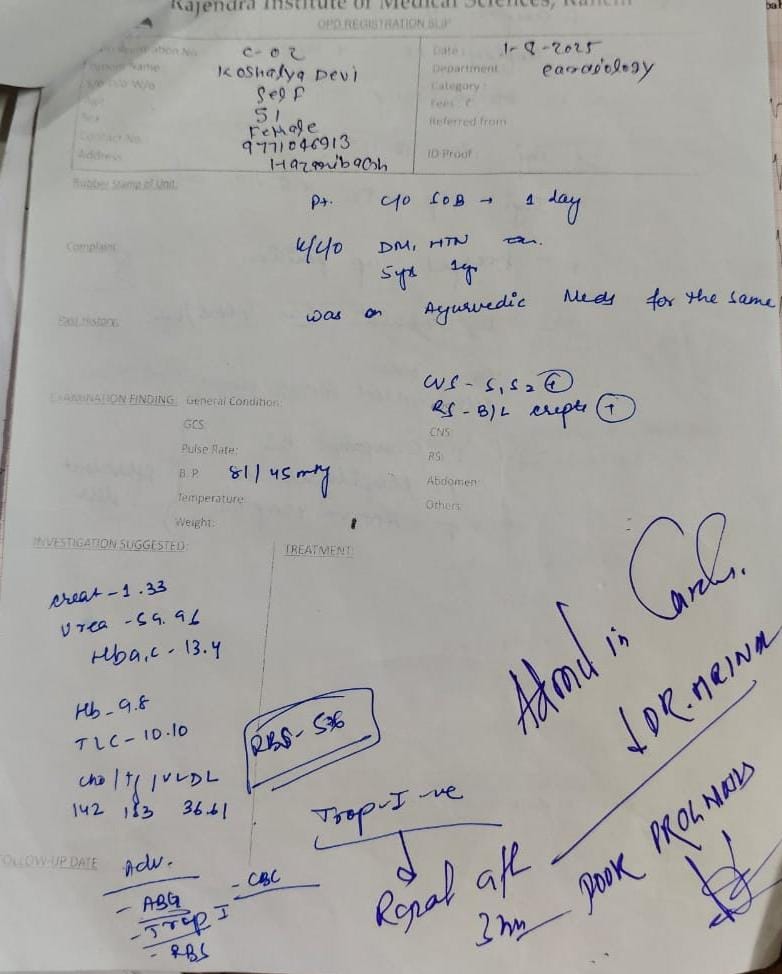 Rajendra Institute of Medical Sciences, Ranchi
OPD REGISTRATION SLIP
Registration No. C-02
Name Koshalya Devi
W/o Self
51
Sex Female
Contact No. 9771046913
Address Hazaribagh
Date: 1-8-2025
Department Cardiology
Category:
Fees: ₹
Referred from
ID Proof
Rubber Stamp of Unit:
Pt. c/o SOB → 1 day
Complaint
K/C/O DM, HTN
5yr 1yr
was on Ayurvedic Meds for the same
Past History:
EXAMINATION FINDING: General Condition:
CVS - S1S2 +
GCS:
RS - B/L crepts +
CNS:
Pulse Rate:
RS:
B.P. 81/45 mmHg
Abdomen:
Temperature:
Others:
Weight:
INVESTIGATION SUGGESTED:
TREATMENT:
creat - 1.33
Urea - 59.96
Hba1c - 13.4
Hb - 9.8
TLC - 10.10
RBS - 536
cho/Tg/VLDL
142 183 36.61
Trop-I -ve
Repeat aft
3 hr
Admit in Cardio.
DR. MRINA
POOR PROGNOSIS
FOLLOW-UP DATE
Adv.
- ABG
- CBC
- Trop I
- RBS